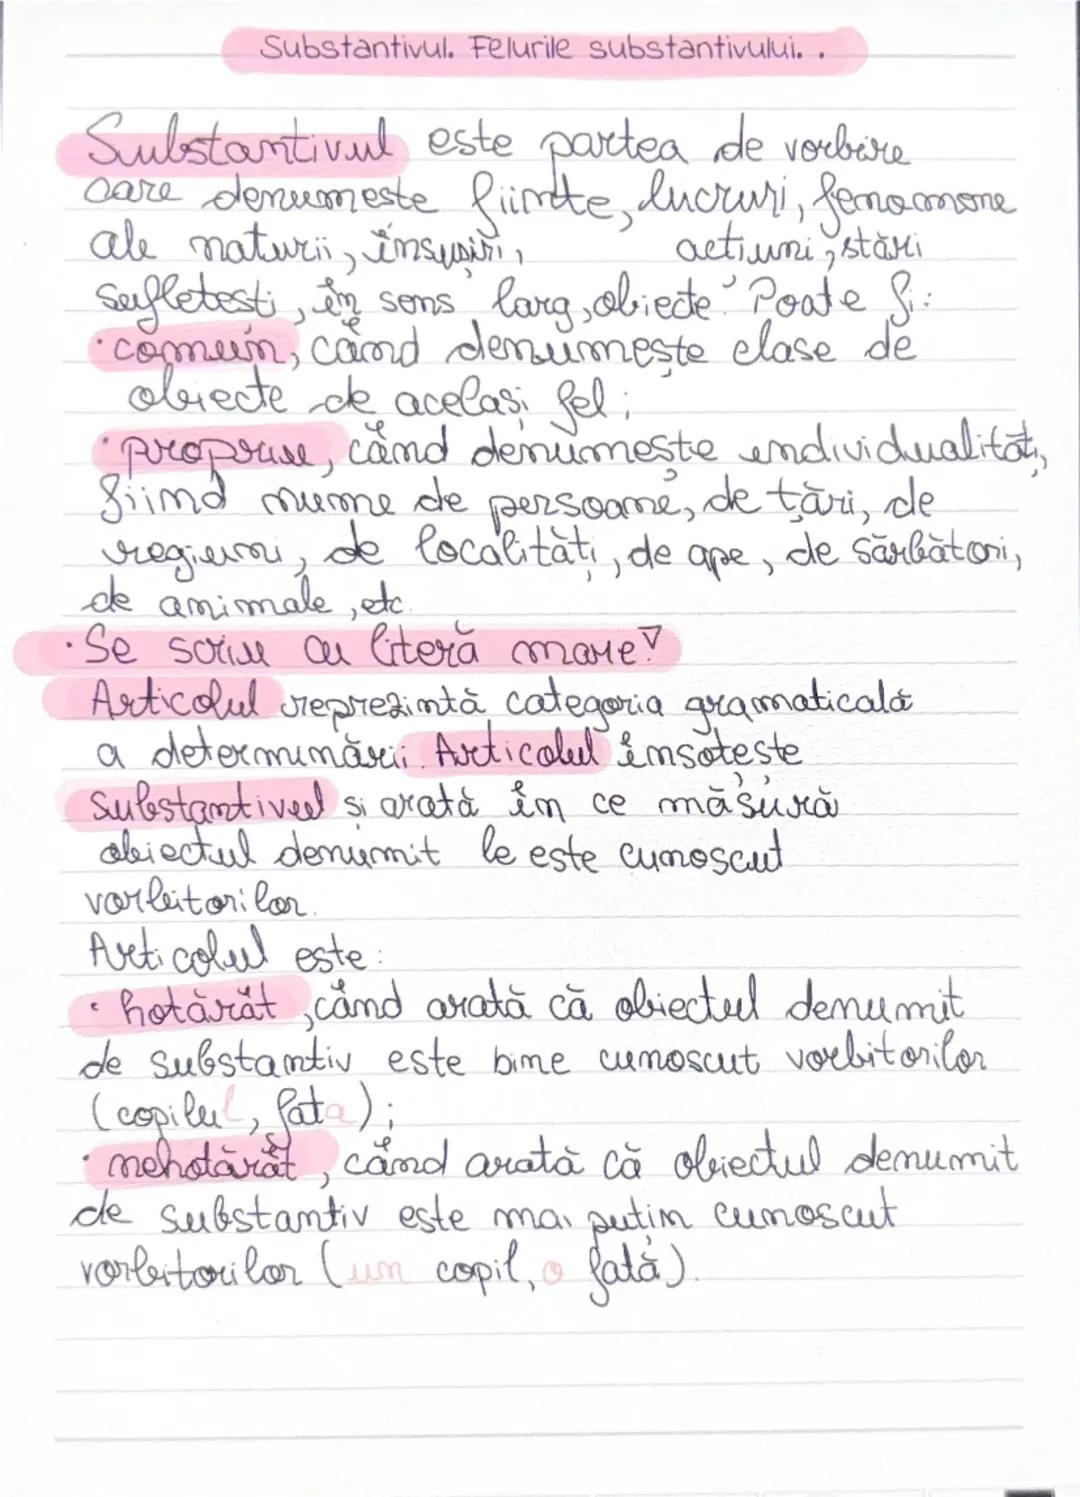 Substantivul. Felurile substantivului. .
Substantivul este partea de vorbire
care denumeste ființe, lucruri, fenomone
ale naturii, însușiri, acțiuni, stări
sufletești, în sens larg, obiecte. Poate fi:
·comun, când denumește clase de
obiecte de același fel;
·propriu, când denumește individualităț,
fiind nume de persoane, de țări, de
regiuni, de localități, de ape, de sărbători,
de animale, etc.
·Se scriu cu literă mare!
Articolul reprezintă categoria gramaticală
a determinării. Articolul însoțește
substantivul și arată în ce măsură
obiectul denumit le este cunoscut
vorbitorilor.
Articolul este:
· hotărât, când arată că obiectul denumit
de substantiv este bine cunoscut vorbitorilor
(copilul, fata);
· nehotărât, când arată că obiectul denumit
de substantiv este mai puțin cunoscut
vorbitorilor (un copil, o fată).